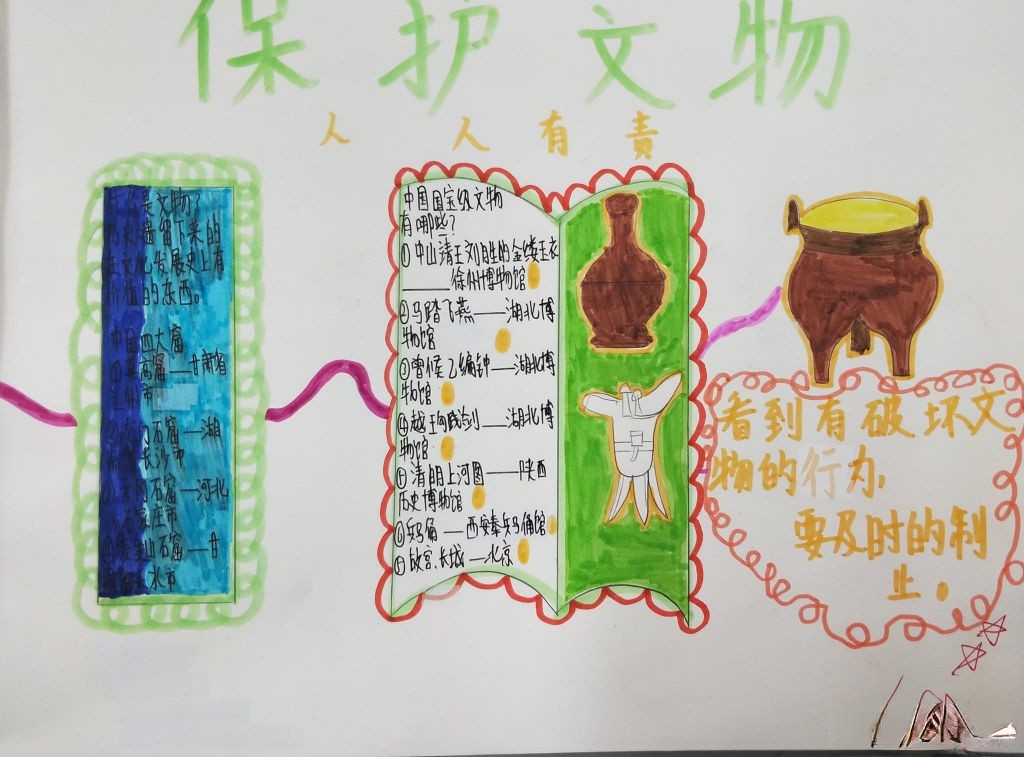 保护文物
人人有责
什么是文物?
历史遗留下来的
在文化发展史上有
价值的东西。
中国四大窟
高窟—甘肃省
市
石窟—湖
长沙市
石窟—河北
庄市
山石窟—甘
水市
中国国宝级文物
有哪些?
①中山靖王刘胜的金缕玉衣
——徐州博物馆
②马踏飞燕——湖北博
物馆
③曾侯乙编钟——湖北博
物馆
④越王勾践剑——湖北博
物馆
⑤清明上河图——陕西
历史博物馆
⑥兵马俑—西安秦兵马俑馆
⑦故宫、长城—北京
看到有破坏文
物的行为,
要及时的制
止。